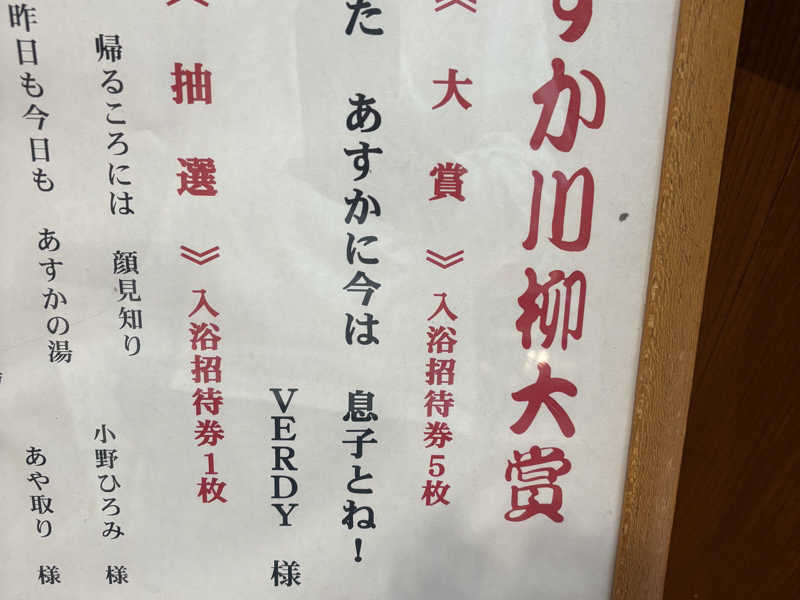 すか川柳大賞
《大賞》入浴招待券5枚
た あすかに今は 息子とね!
VERDY 様
抽選》入浴招待券1枚
帰るころには 顔見知り
小野ひろみ 様
昨日も今日も あすかの湯
あや取り 様